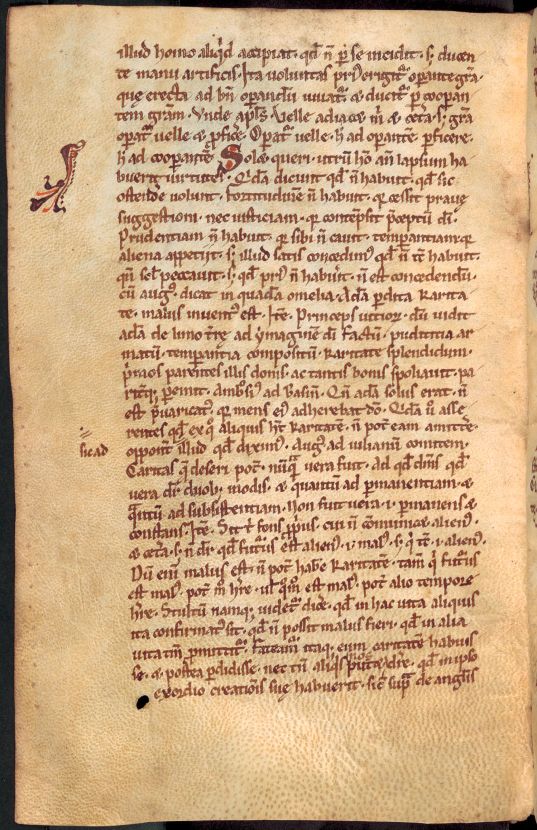 illud homo aliqd accipiat. qd n p se incidit. s; ducen
te manu artificis. Ita voluntas pri9 erigit᷑ opante gra᷑
que erecta ad bn opandu᷑ iuuat᷑. & ducit᷑ p coopan
tem gram. Vnde apls. Velle adiacet m. & cet᷑a. s; gra᷑
opat᷑ velle & pfice. Opat᷑ velle. h ad opante᷑. pficere.
h ad coopante᷑. Solet queri. utru᷑ ho an᷑ lapsum ha
buerit uirtutes. Qda᷑ dicunt qd n habuit. qd sic
ostende uolunt. Fortitudine᷑ n habuit. q cessit praue
suggestioni. nec iusticiam. q contepsit pceptu᷑ di.
Prudentiam n habuit. q sibi n cauit. temperantiam. q
aliena appetiit. s; illud satis concedim9 qd n tc habuit.
qn sel peccauit. s; qd pri9 n habuit. n est concedendu᷑.
cu᷑ aug9. dicat in quada᷑ omelia. Ada᷑ pdita karita
te. malus inuent9 est. Ite᷑. Princeps uitior. du᷑ uidit
ada᷑ de limo t᷑re ad ymagine᷑ di factu᷑. pudicitia ar
matu᷑. temperantia compositu᷑. karitate splendidum.
pmos parentes illis donis. ac tantis bonis spoliauit. pa
rit᷑q; pemit. Ambosi9 ad Sabinu᷑. Qn ada᷑ solus erat. n
est puaricat9. q mens ei9 adherebat do. Qda᷑ u asse
rentes qd ex q aliqus ht karitate᷑. n pot eam amitte᷑.
opponit illud qd dixim9. Aug9 ad iulianu᷑ comitem.
sic ad
Caritas q deseri pot. nuq᷑ uera fuit. ad qd dim9 qd
uera dr duob; modis. & quantu᷑ ad pmanentiam &
qntu᷑ ad subsistentiam. Non fuit uera .i. pmanens &
constans. Ite᷑. Sit t fons ppus. cui n comunicet alien9.
& cet᷑a. s; n dr qd futur9 est alien9. i. mal9. s; q tc .i. alien9.
Du᷑ eni᷑ malus est. n pot habe karitate᷑. tam q futur9
est mal9. pot m hre. ul q m est mal9. pot alio tempore
hre. Stultu᷑ namq; uidet᷑ dice. qd in hac uita aliquis
ita confirmat9 sit. qd n possit malus fieri. qd in alia
uita tm pmittit᷑. fateam᷑ itaq;. eum caritate᷑ habuis
se. & postea pdidisse. nec tn aliqs putet adere. qd in ipso
exordio creationis sue habuerit. sic supra de anglis